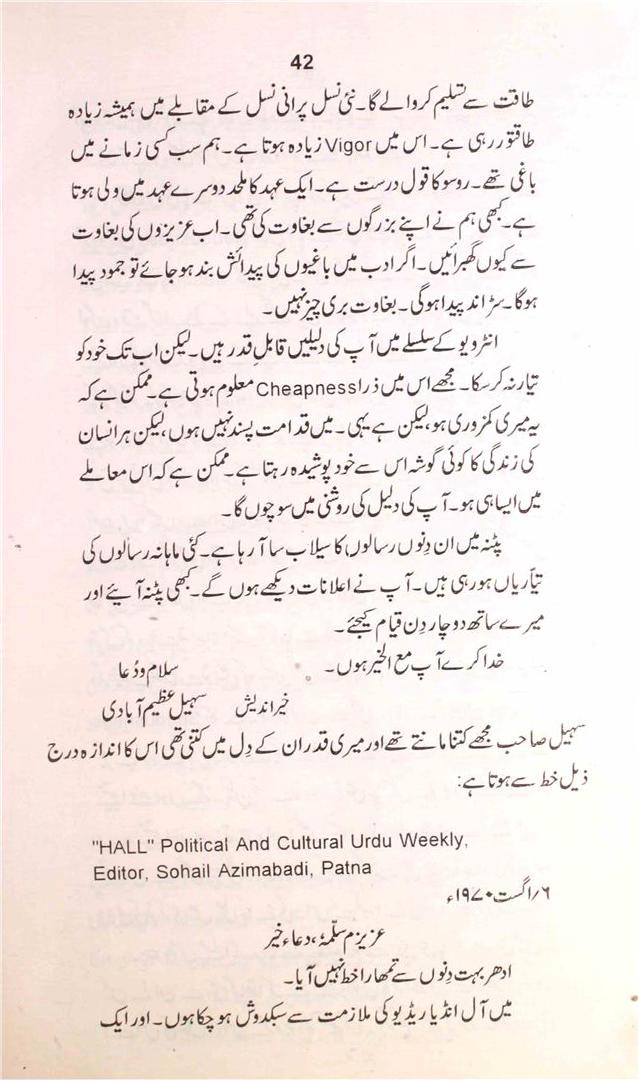 42
طاقت سے تسلیم کروالے گا۔ نئی نسل پرانی نسل کے مقابلے میں ہمیشہ زیادہ
طاقتور رہی ہے۔ اس میں Vigor زیادہ ہوتا ہے۔ ہم سب کسی زمانے میں
باغی تھے۔ روسو کا قول درست ہے۔ ایک عہد کا ملحد دوسرے عہد میں ولی ہوتا
ہے۔ کبھی ہم نے اپنے بزرگوں سے بغاوت کی تھی۔ اب عزیزوں کی بغاوت
سے کیوں گھبرائیں۔ اگر ادب میں باغیوں کی پیدائش بند ہو جائے تو جمود پیدا
ہوگا۔ سڑاند پیدا ہوگی۔ بغاوت بری چیز نہیں۔
انٹرویو کے سلسلے میں آپ کی دلیلیں قابلِ قدر ہیں۔ لیکن اب تک خود کو
تیار نہ کر سکا۔ مجھے اس میں ذرا Cheapness معلوم ہوتی ہے۔ ممکن ہے کہ
یہ میری کمزوری ہو، لیکن ہے یہی۔ میں قدامت پسند نہیں ہوں، لیکن ہر انسان
کی زندگی کا کوئی گوشہ اس سے خود پوشیدہ رہتا ہے۔ ممکن ہے کہ اس معاملے
میں ایسا ہی ہو۔ آپ کی دلیل کی روشنی میں سوچوں گا۔
پٹنہ میں ان دِنوں رسالوں کا سیلاب سا آ رہا ہے۔ کئی ماہانہ رسالوں کی
تیّاریاں ہو رہی ہیں۔ آپ نے اعلانات دیکھے ہوں گے۔ کبھی پٹنہ آیئے اور
میرے ساتھ دو چار دِن قیام کیجئے۔
خدا کرے آپ مع الخیر ہوں۔
سلام و دُعا
خیر اندیش سہیل عظیم آبادی
سہیل صاحب مجھے کتنا مانتے تھے اور میری قدر ان کے دِل میں کتنی تھی اس کا اندازہ درج
ذیل خط سے ہوتا ہے:
"HALL" Political And Cultural Urdu Weekly,
Editor, Sohail Azimabadi, Patna
۶؍اگست ۱۹۷۰ء
عزیزم سلّمہٗ، دعاء خیر
ادھر بہت دِنوں سے تمھارا خط نہیں آیا۔
میں آل انڈیا ریڈیو کی ملازمت سے سبکدوش ہو چکا ہوں۔ اور ایک